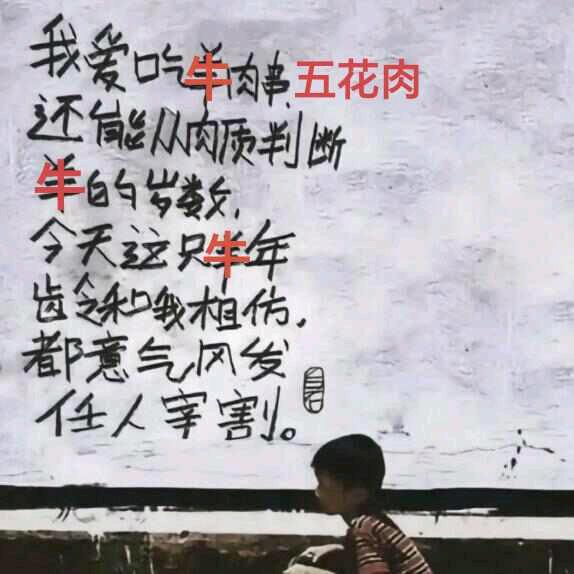 我爱吃牛肉串,五花肉
还能从肉质判断
牛的岁数,
今天这只牛年
龄和我相仿,
都意气风发
任人宰割。